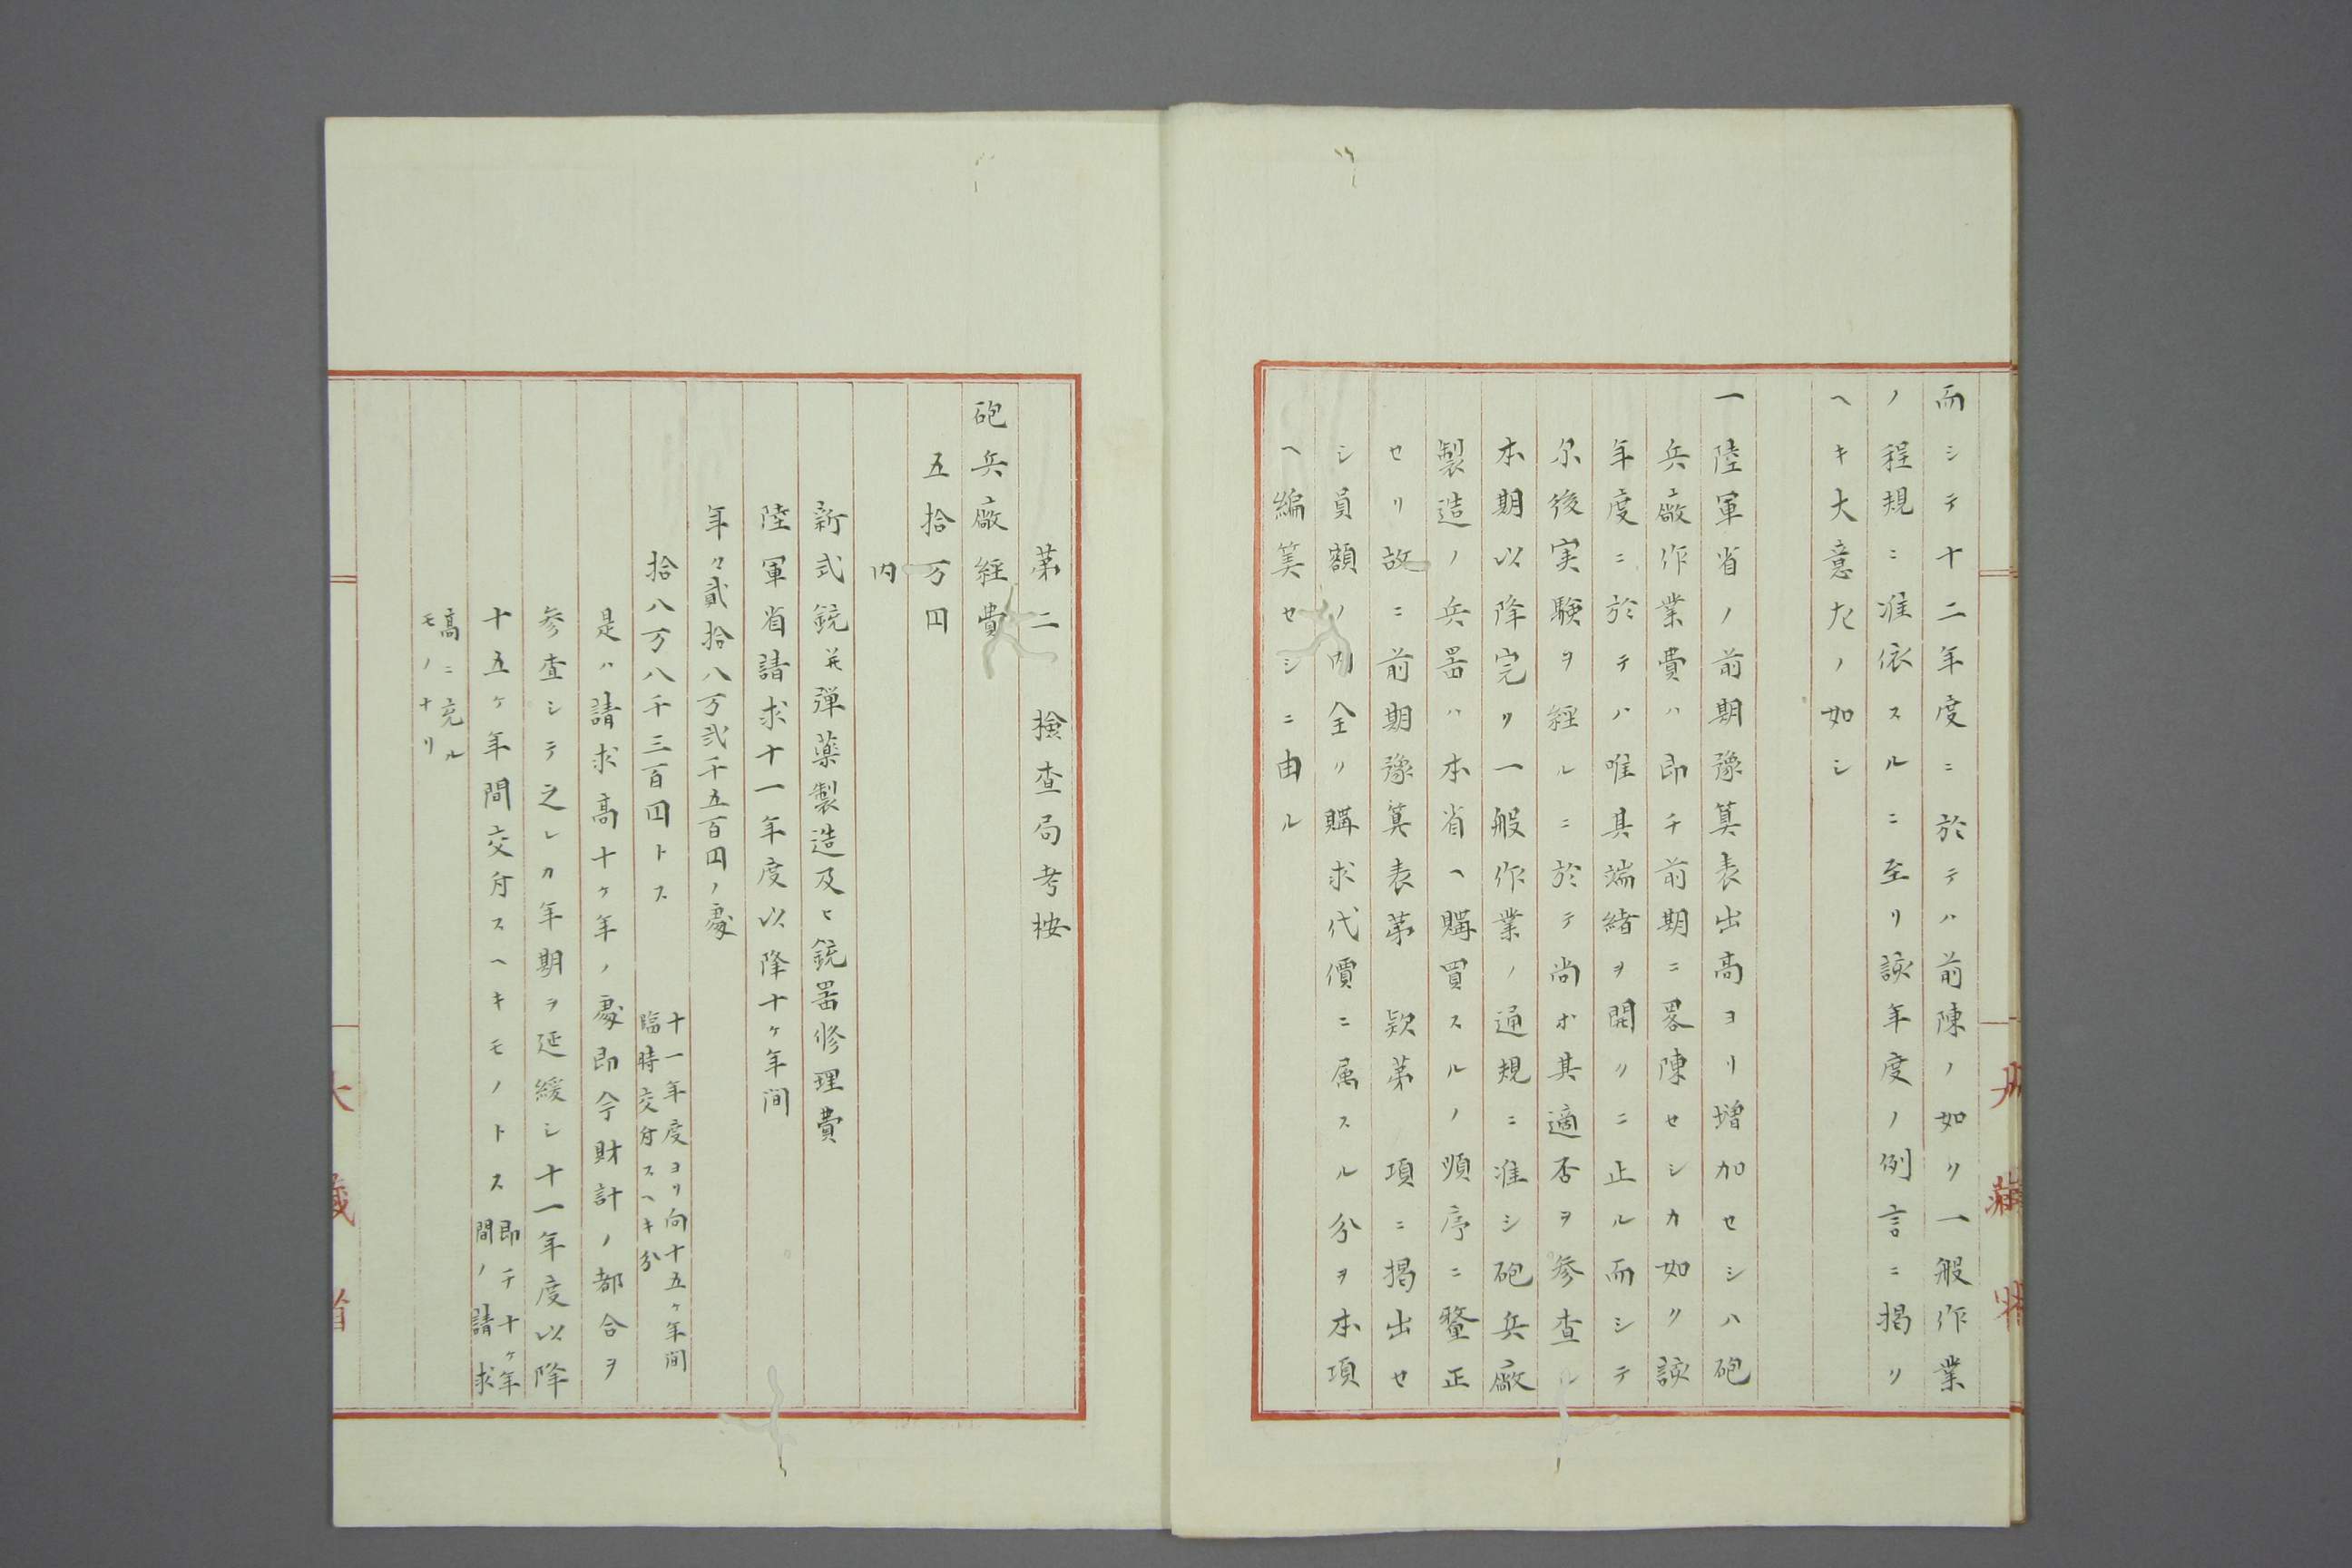 而シテ十二年度ニ於テハ前陳ノ如ク一般作業
ノ程規ニ准依スルニ至リ該年度ノ例言ニ掲ク
ヘキ大意左ノ如シ
一陸軍省ノ前期豫算表出高ヨリ増加セシハ砲
兵廠作業費ハ即チ前期ニ畧陳セシカ如ク該
年度ニ於テハ唯其端緒ヲ開クニ止ル而シテ
尓後実験ヲ経ルニ於テ尚ホ其適否ヲ参查ル
本期以降完ク一般作業ノ通規ニ准シ砲兵廠
製造ノ兵器ハ本省ヘ購買スルノ順序ニ釐正
セリ故ニ前期豫算表第 欵第 項ニ掲出セ
シ員額ノ内全ク購求代價ニ属スル分ヲ本項
ヘ編筭セシニ由ル
第二 撿查局考按
砲兵廠経費
五拾万円
内
新式銃并弾藥製造及ヒ銃器修理費
陸軍省請求十一年度以降十ヶ年间
年々貳拾八万弐千五百円ノ處
拾八万八千三百円トス
十一年度ヨリ向十五ヶ年间
臨時交付スヘキ分
是ハ請求高十ヶ年ノ處即今財計ノ都合ヲ
参查シテ之レカ年期ヲ延緩シ十一年度以降
十五ヶ年間交付スヘキモノトス
即チ十ヶ年
間ノ請求
高ニ充ル
モノナリ
大藏省